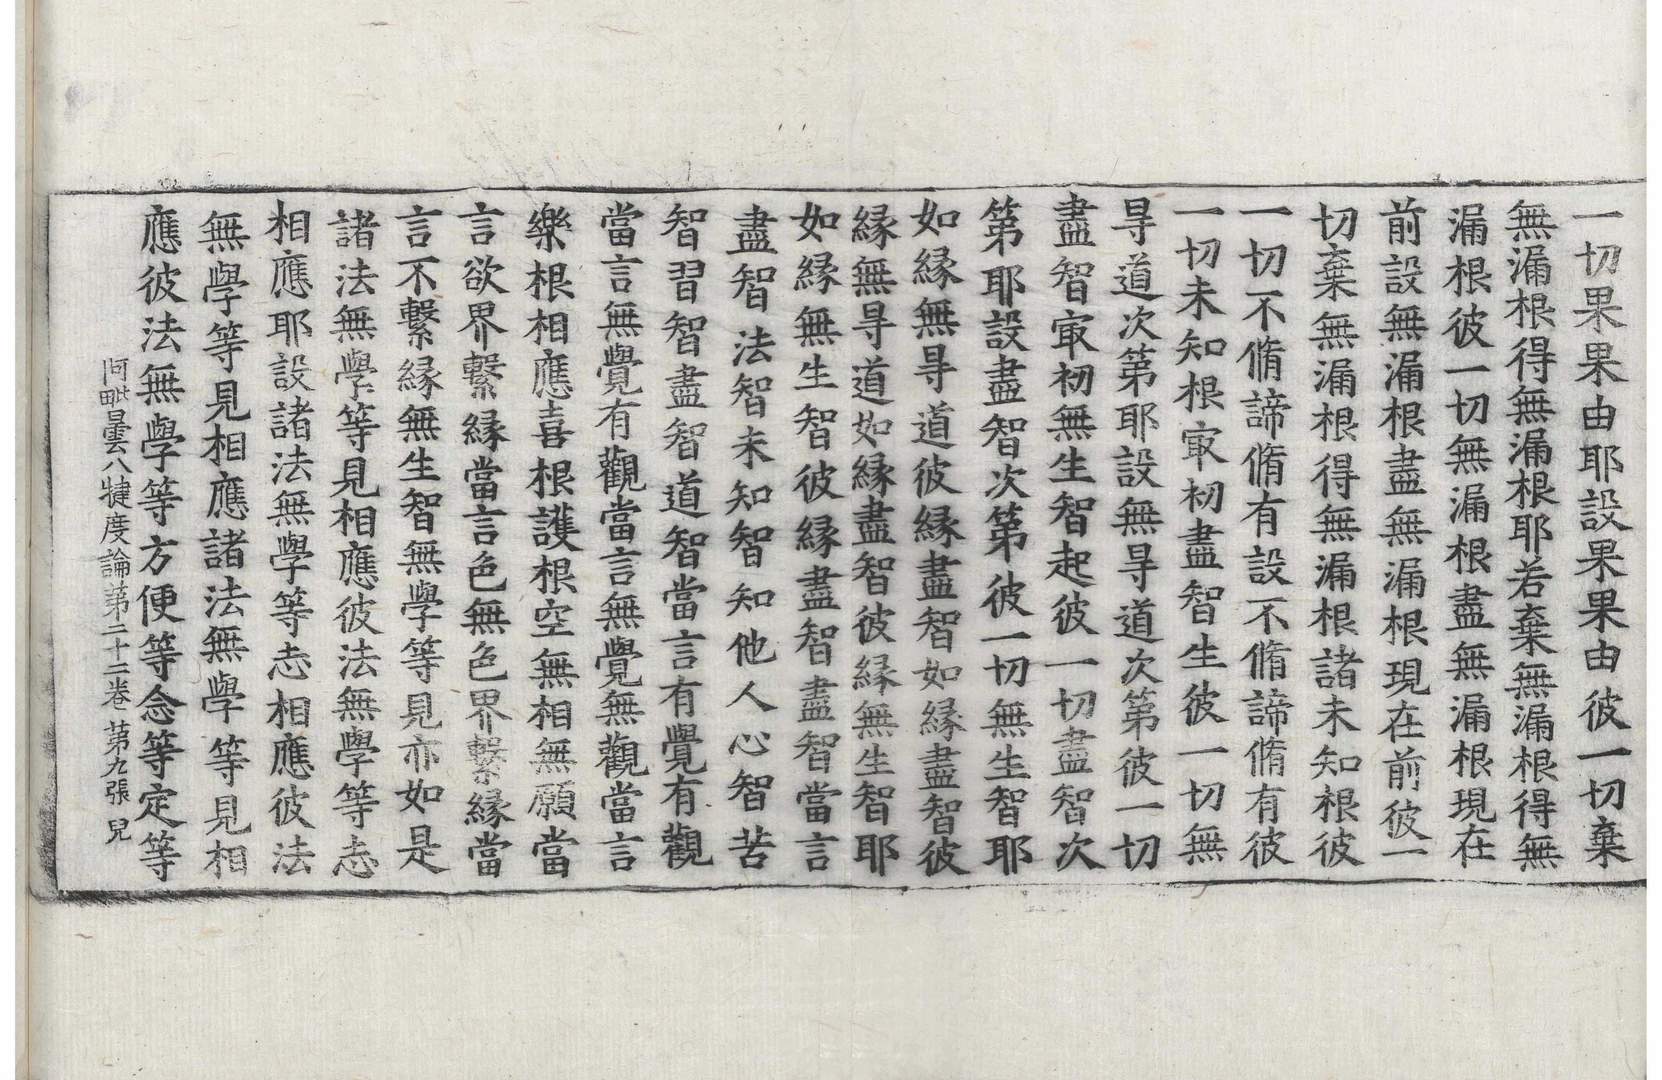 一切果果由耶設果果由彼一切棄
無漏根得無漏根耶若棄無漏根得無
漏根彼一切無漏根盡無漏根現在
前設無漏根盡無漏根現在前彼一
切棄無漏根得無漏根諸未知根彼
一切不脩諦脩有設不脩諦脩有彼
一切未知根㝡初盡智生彼一切無
㝵道次第耶設無㝵道次第彼一切
盡智㝡初無生智起彼一切盡智次
第耶設盡智次第彼一切無生智耶
如縁無㝵道彼縁盡智如縁盡智彼
縁無㝵道如縁盡智彼縁無生智耶
如縁無生智彼縁盡智盡智當言
盡智法智未知智知他人心智苦
智習智盡智道智當言有覺有觀
當言無覺有觀當言無覺無觀當言
樂根相應喜根護根空無相無願當
言欲界繫縁當言色無色界繫縁當
言不繫縁無生智無學等見亦如是
諸法無學等見相應彼法無學等志
相應耶設諸法無學等志相應彼法
無學等見相應諸法無學等見相
應彼法無學等方便等念等定等
阿毗曇八犍度論第二十二卷 苐九張 皃